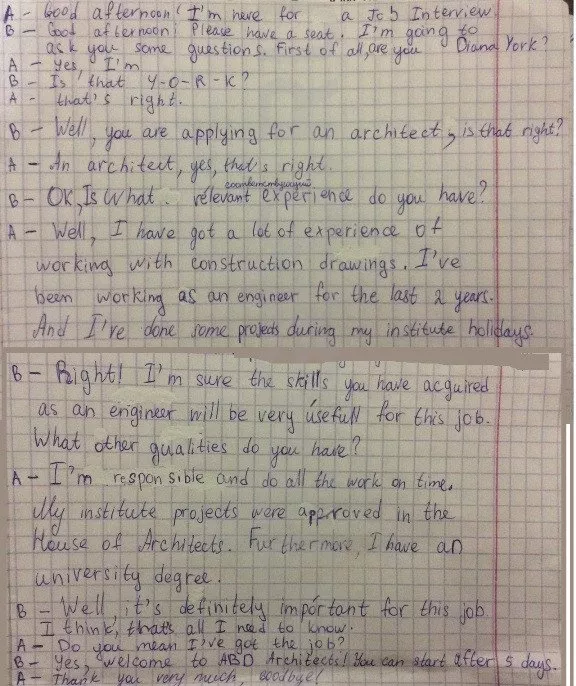 A - Good afternoon! I'm here for a Job Interview
B - Good afternoon! Please have a seat. I'm going to
ask you some questions. First of all, are you Diana York?
A - Yes, I'm
B - Is that Y-O-R-K?
A - that's right.
B - Well, you are applying for an architect, is that right?
A - An architect, yes, that's right.
B - OK, Is What. relevant experience do you have?
A - Well, I have got a lot of experience of
working with construction drawings. I've
been working as an engineer for the last 2 years.
And I've done some projects during my institute holidays.
B - Right! I'm sure the skills you have acquired
as an engineer will be very usefull for this job.
What other qualities do you have?
A - I'm responsible and do all the work on time.
My institute projects were approved in the
House of Architects. Furthermore, I have an
university degree.
B - Well, it's definitely important for this job.
I think, that's all I need to know.
A - Do you mean I've got the job?
B - Yes, welcome to ABD Architects! You can start after 5 days.
A - Thank you very much, goodbye!